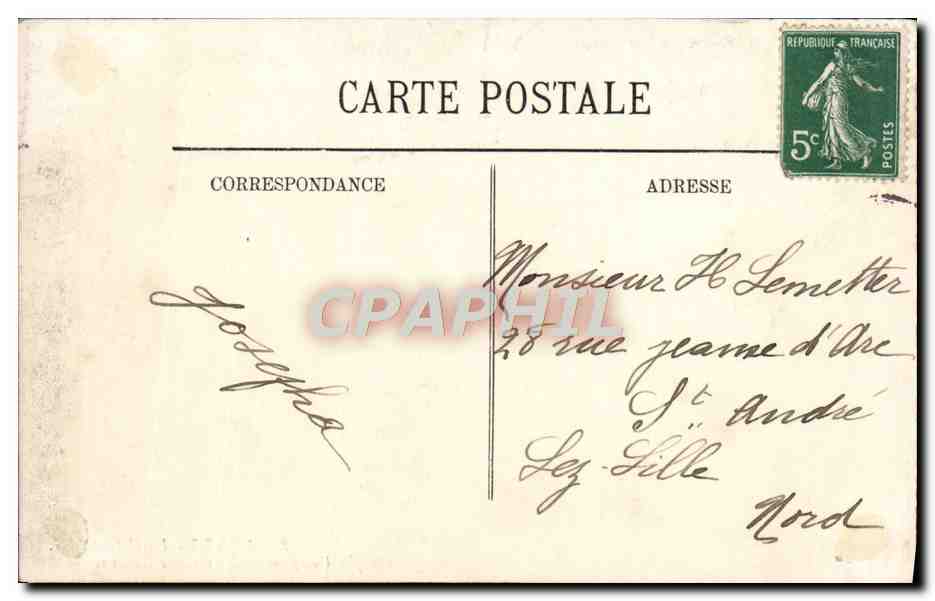 RÉPUBLIQUE FRANÇAISE
5c
POSTES
CARTE POSTALE
CORRESPONDANCE
ADRESSE
Josepha
Monsieur H Lemetter
28 rue jeanne d'Arc
St André
Lez-Lille
Nord
CPAPHIL